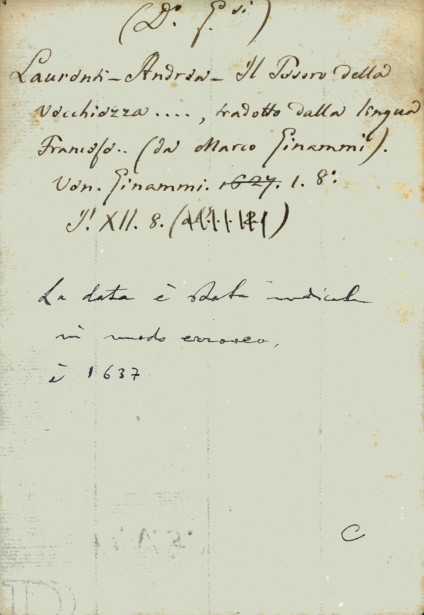 (D.º G.si)
Laurenti - Andrea - Il Tesoro della
vecchiezza...., tradotto dalla lingua
Francese.. (da Marco Ginammi).
Ven. Ginammi. 1627. 1. 8.º
J.! XII. 8.
La data è stata indicata
in modo erroneo,
è 1637
C